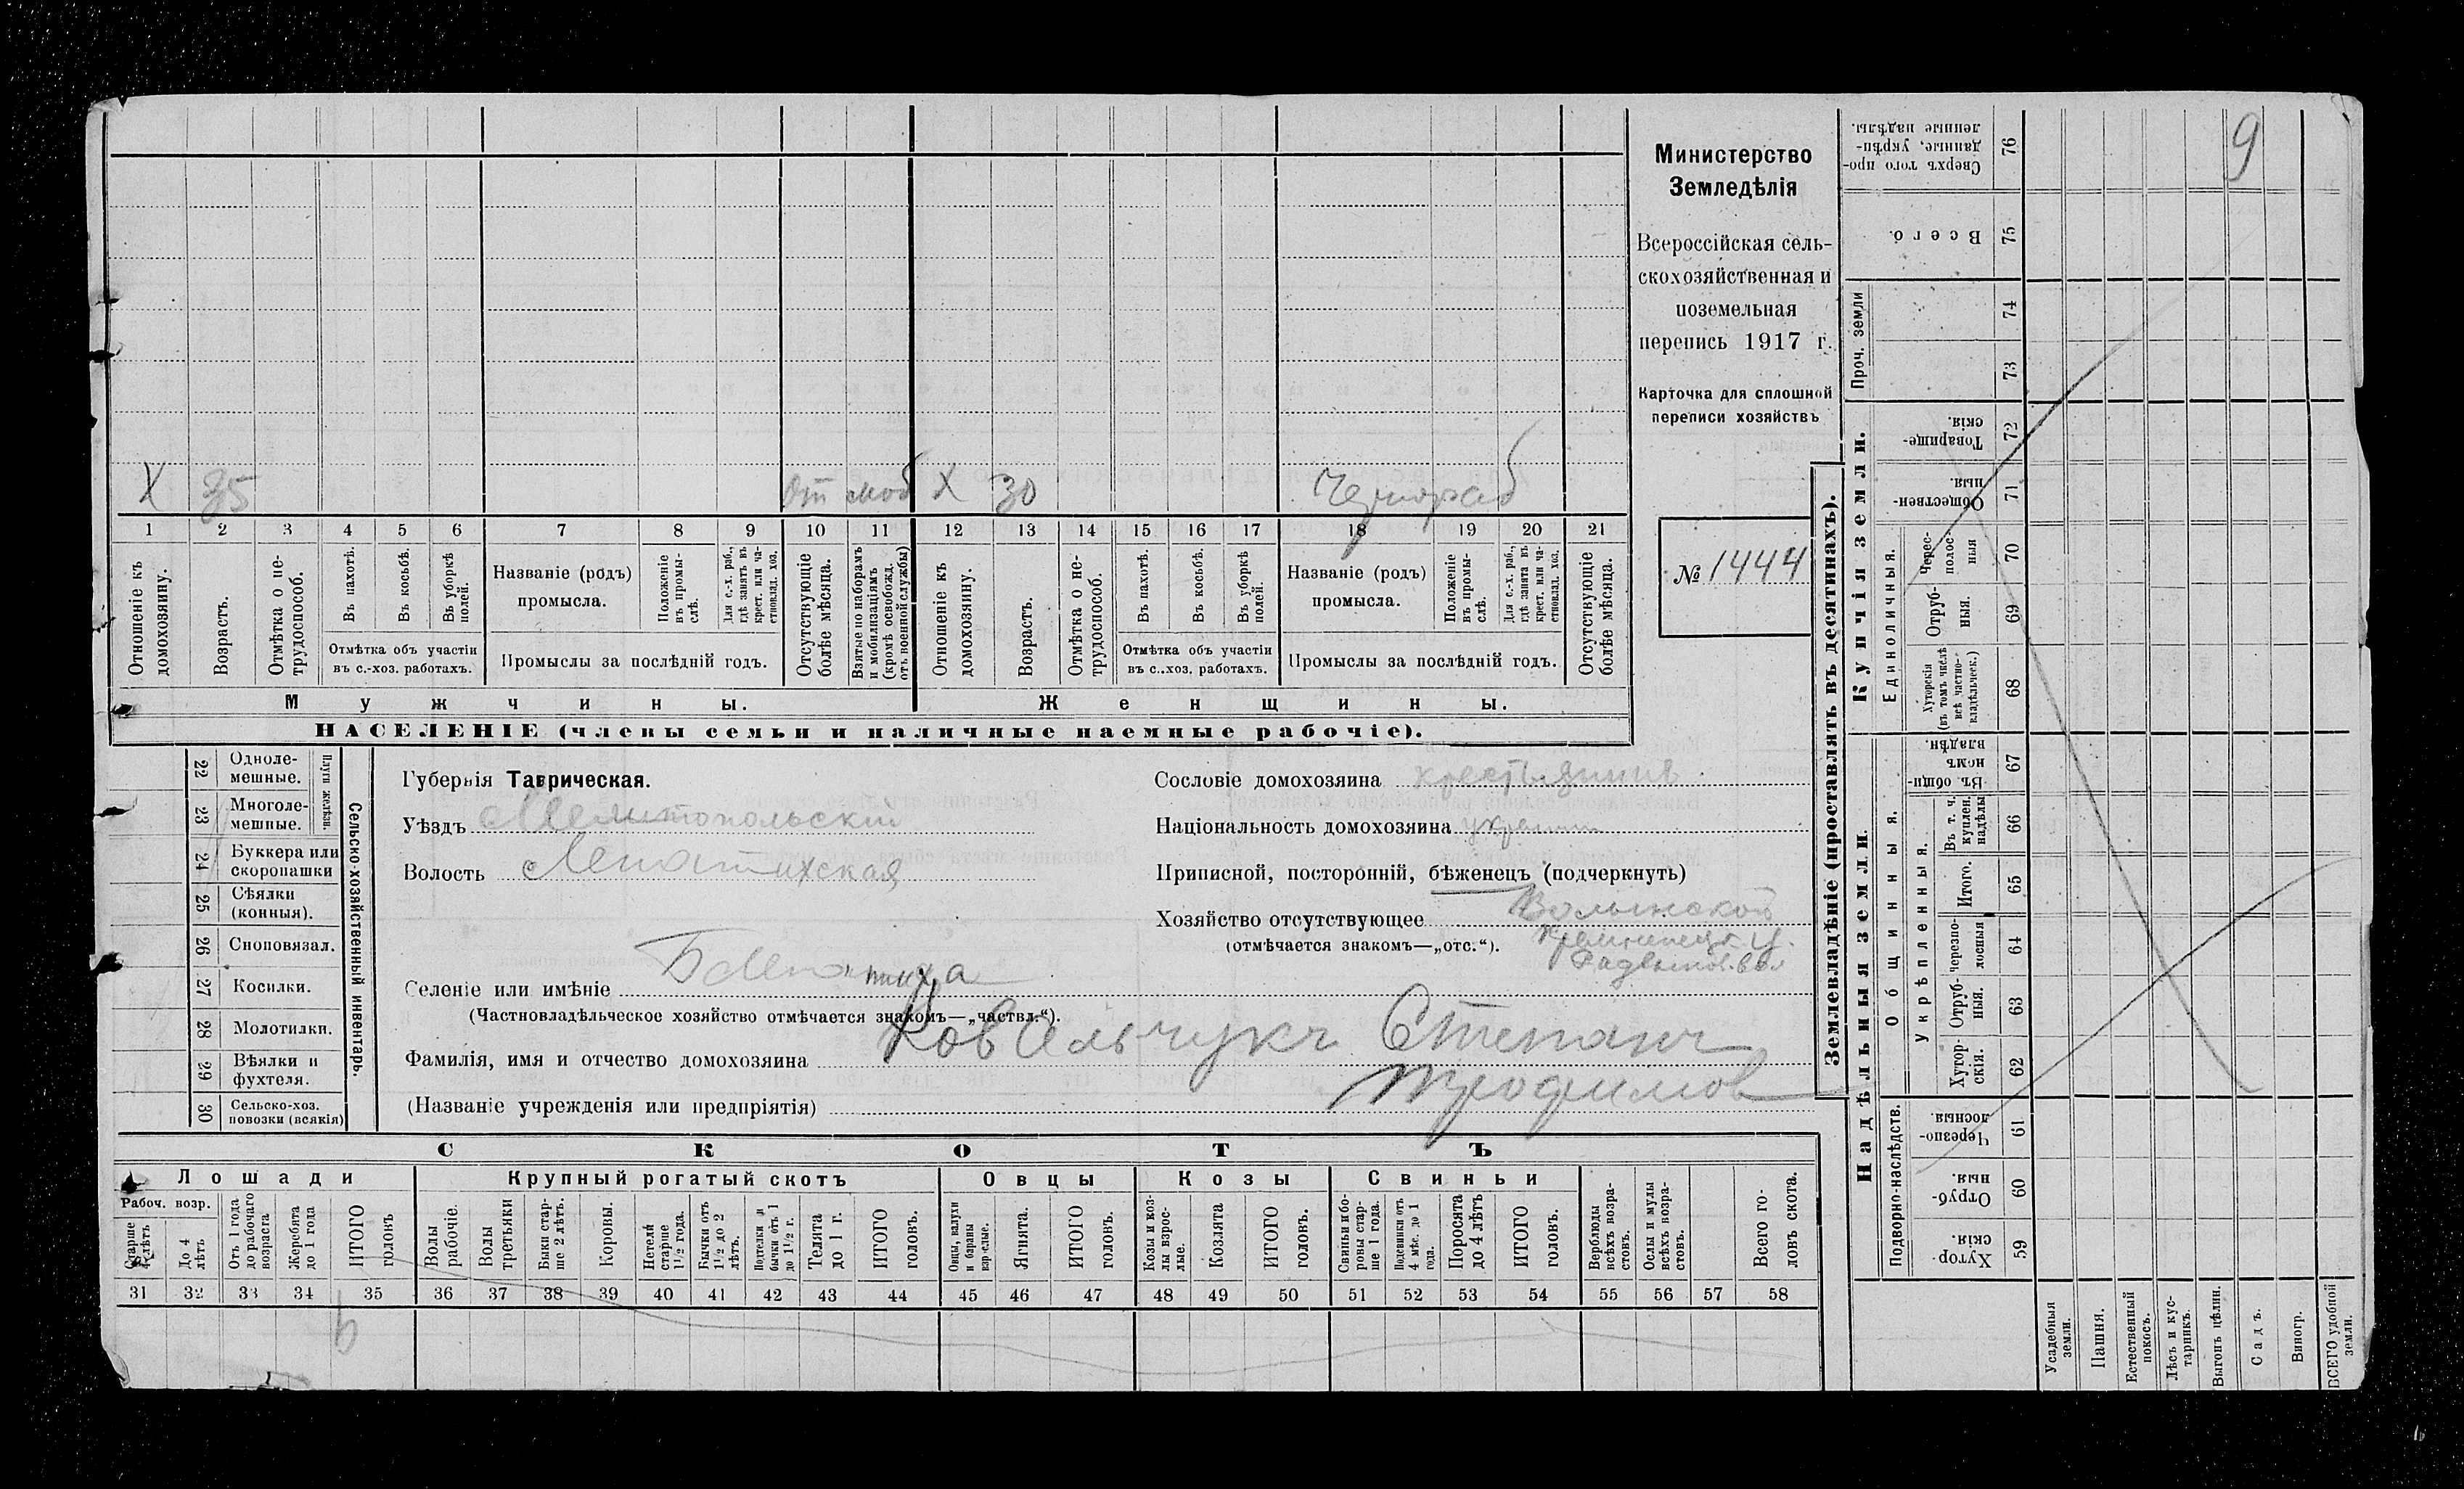 Министерство
Земледѣлія
Всероссійская сель-
скохозяйственная и
поземельная
перепись 1917 г.
Карточка для сплошной
переписи хозяйствъ
№ 1444
9
X 35 От моб X 30 Чернораб
1 2 3 4 5 6 7 8 9 10 11 12 13 14 15 16 17 18 19 20 21
Отношеніе къ домохозяину.
Возрастъ.
Отмѣтка о не-трудоспособ.
Въ пахотѣ.
Въ косьбѣ.
Въ уборкѣ полей.
Отмѣтка объ участіи
въ с.-хоз. работахъ.
Названіе (родъ)
промысла.
Положеніе въ промы-слѣ.
Для с.-х. раб., гдѣ занятъ въ крест. или ча-стновлад. хоз.
Промыслы за послѣдній годъ.
Отсутствующіе болѣе мѣсяца.
Взятые по наборамъ и мобилизаціямъ (кромѣ освобожд. отъ военной службы)
Отношеніе къ домохозяину.
Возрастъ.
Отмѣтка о не-трудоспособ.
Въ пахотѣ.
Въ косьбѣ.
Въ уборкѣ полей.
Отмѣтка объ участіи
въ с..хоз. работахъ.
Названіе (родъ)
промысла.
Положеніе въ промы-слѣ.
Для с.-х. раб., гдѣ занята въ крест. или ча-стновлад. хоз.
Промыслы за послѣдній годъ.
Отсутствующіе болѣе мѣсяца.
Мужчины. Женщины.
НАСЕЛЕНІЕ (члены семьи и наличные наемные рабочіе).
Сельско-хозяйственный инвентарь.
Плуги желѣзн.
22 Одноле-мешные.
23 Многоле-мешные.
24 Буккера или скоропашки
25 Сѣялки (конныя).
26 Сноповязал.
27 Косилки.
28 Молотилки.
29 Вѣялки и фухтеля.
30 Сельско-хоз. повозки (всякія)
Губернія Таврическая.
Уѣздъ Мелитопольскій
Волость Лепатихская
Сословіе домохозяина крестьянинъ
Національность домохозяина украин
Приписной, посторонній, бѣженецъ (подчеркнуть)
Хозяйство отсутствующее Волынской
(отмѣчается знакомъ—„отс.“). Кременецк. у.
Селеніе или имѣніе Б Лепатиха
(Частновладѣльческое хозяйство отмѣчается знакомъ—„частвл.“).
Фамилія, имя и отчество домохозяина Ковальчукъ Степанъ
Трофимов
(Названіе учрежденія или предпріятія)
СКОТЪ
Лошади Крупный рогатый скотъ Овцы Козы Свиньи
Рабоч. возр.
Старше 4 лѣтъ
До 4 лѣтъ
Отъ 1 года до рабочаго возраста
Жеребята до 1 года
ИТОГО головъ
Волы рабочіе.
Волы третьяки
Быки стар-ше 2 лѣтъ.
Коровы.
Нетели старше 1½ года.
Бычки отъ 1½ до 2 лѣтъ.
Подтелки и бычки отъ 1 до 1½ г.
Телята до 1 г.
ИТОГО головъ.
Овцы, валухи и бараны взрослые.
Ягнята.
ИТОГО головъ.
Козы и коз-лы взрос-лые.
Козлята
ИТОГО головъ.
Свиньи и бо-ровы стар-ше 1 года.
Подсвинки отъ 4 мѣс. до 1 года.
Поросята до 4 лѣтъ
ИТОГО головъ.
Верблюды всѣхъ возра-стовъ.
Ослы и мулы всѣхъ возра-стовъ.
Всего го-ловъ скота.
31 32 33 34 35 36 37 38 39 40 41 42 43 44 45 46 47 48 49 50 51 52 53 54 55 56 57 58
Землевладѣніе (проставлять въ десятинахъ).
Надѣльныя земли. Купчія земли. Проч. земли
Подворно-наслѣдств.
Общинныя.
Укрѣпленныя.
Единоличныя.
Хутор-скія. 59
Отруб-ныя. 60
Черезпо-лосныя 61
Хутор-скія. 62
Отруб-ныя. 63
черезпо-лосныя 64
Итого. 65
Въ т. ч. куплен. надѣлы 66
Въ общин-номъ владѣн. 67
Хуторскія (въ томъ числѣ всѣ частно-владѣльческ.) 68
Отруб-ныя. 69
Черес-полос-ныя 70
Обществен-ныя. 71
Товарище-скія. 72
73
74
Всего. 75
Сверхъ того про-данные, укрѣп-ленные надѣлы. 76
Усадебныя земли.
Пашня.
Естественный покосъ.
Лѣсъ и кус-тарникъ.
Выгонъ цѣлин.
Садъ.
Виногр.
ВСЕГО удобной земли.